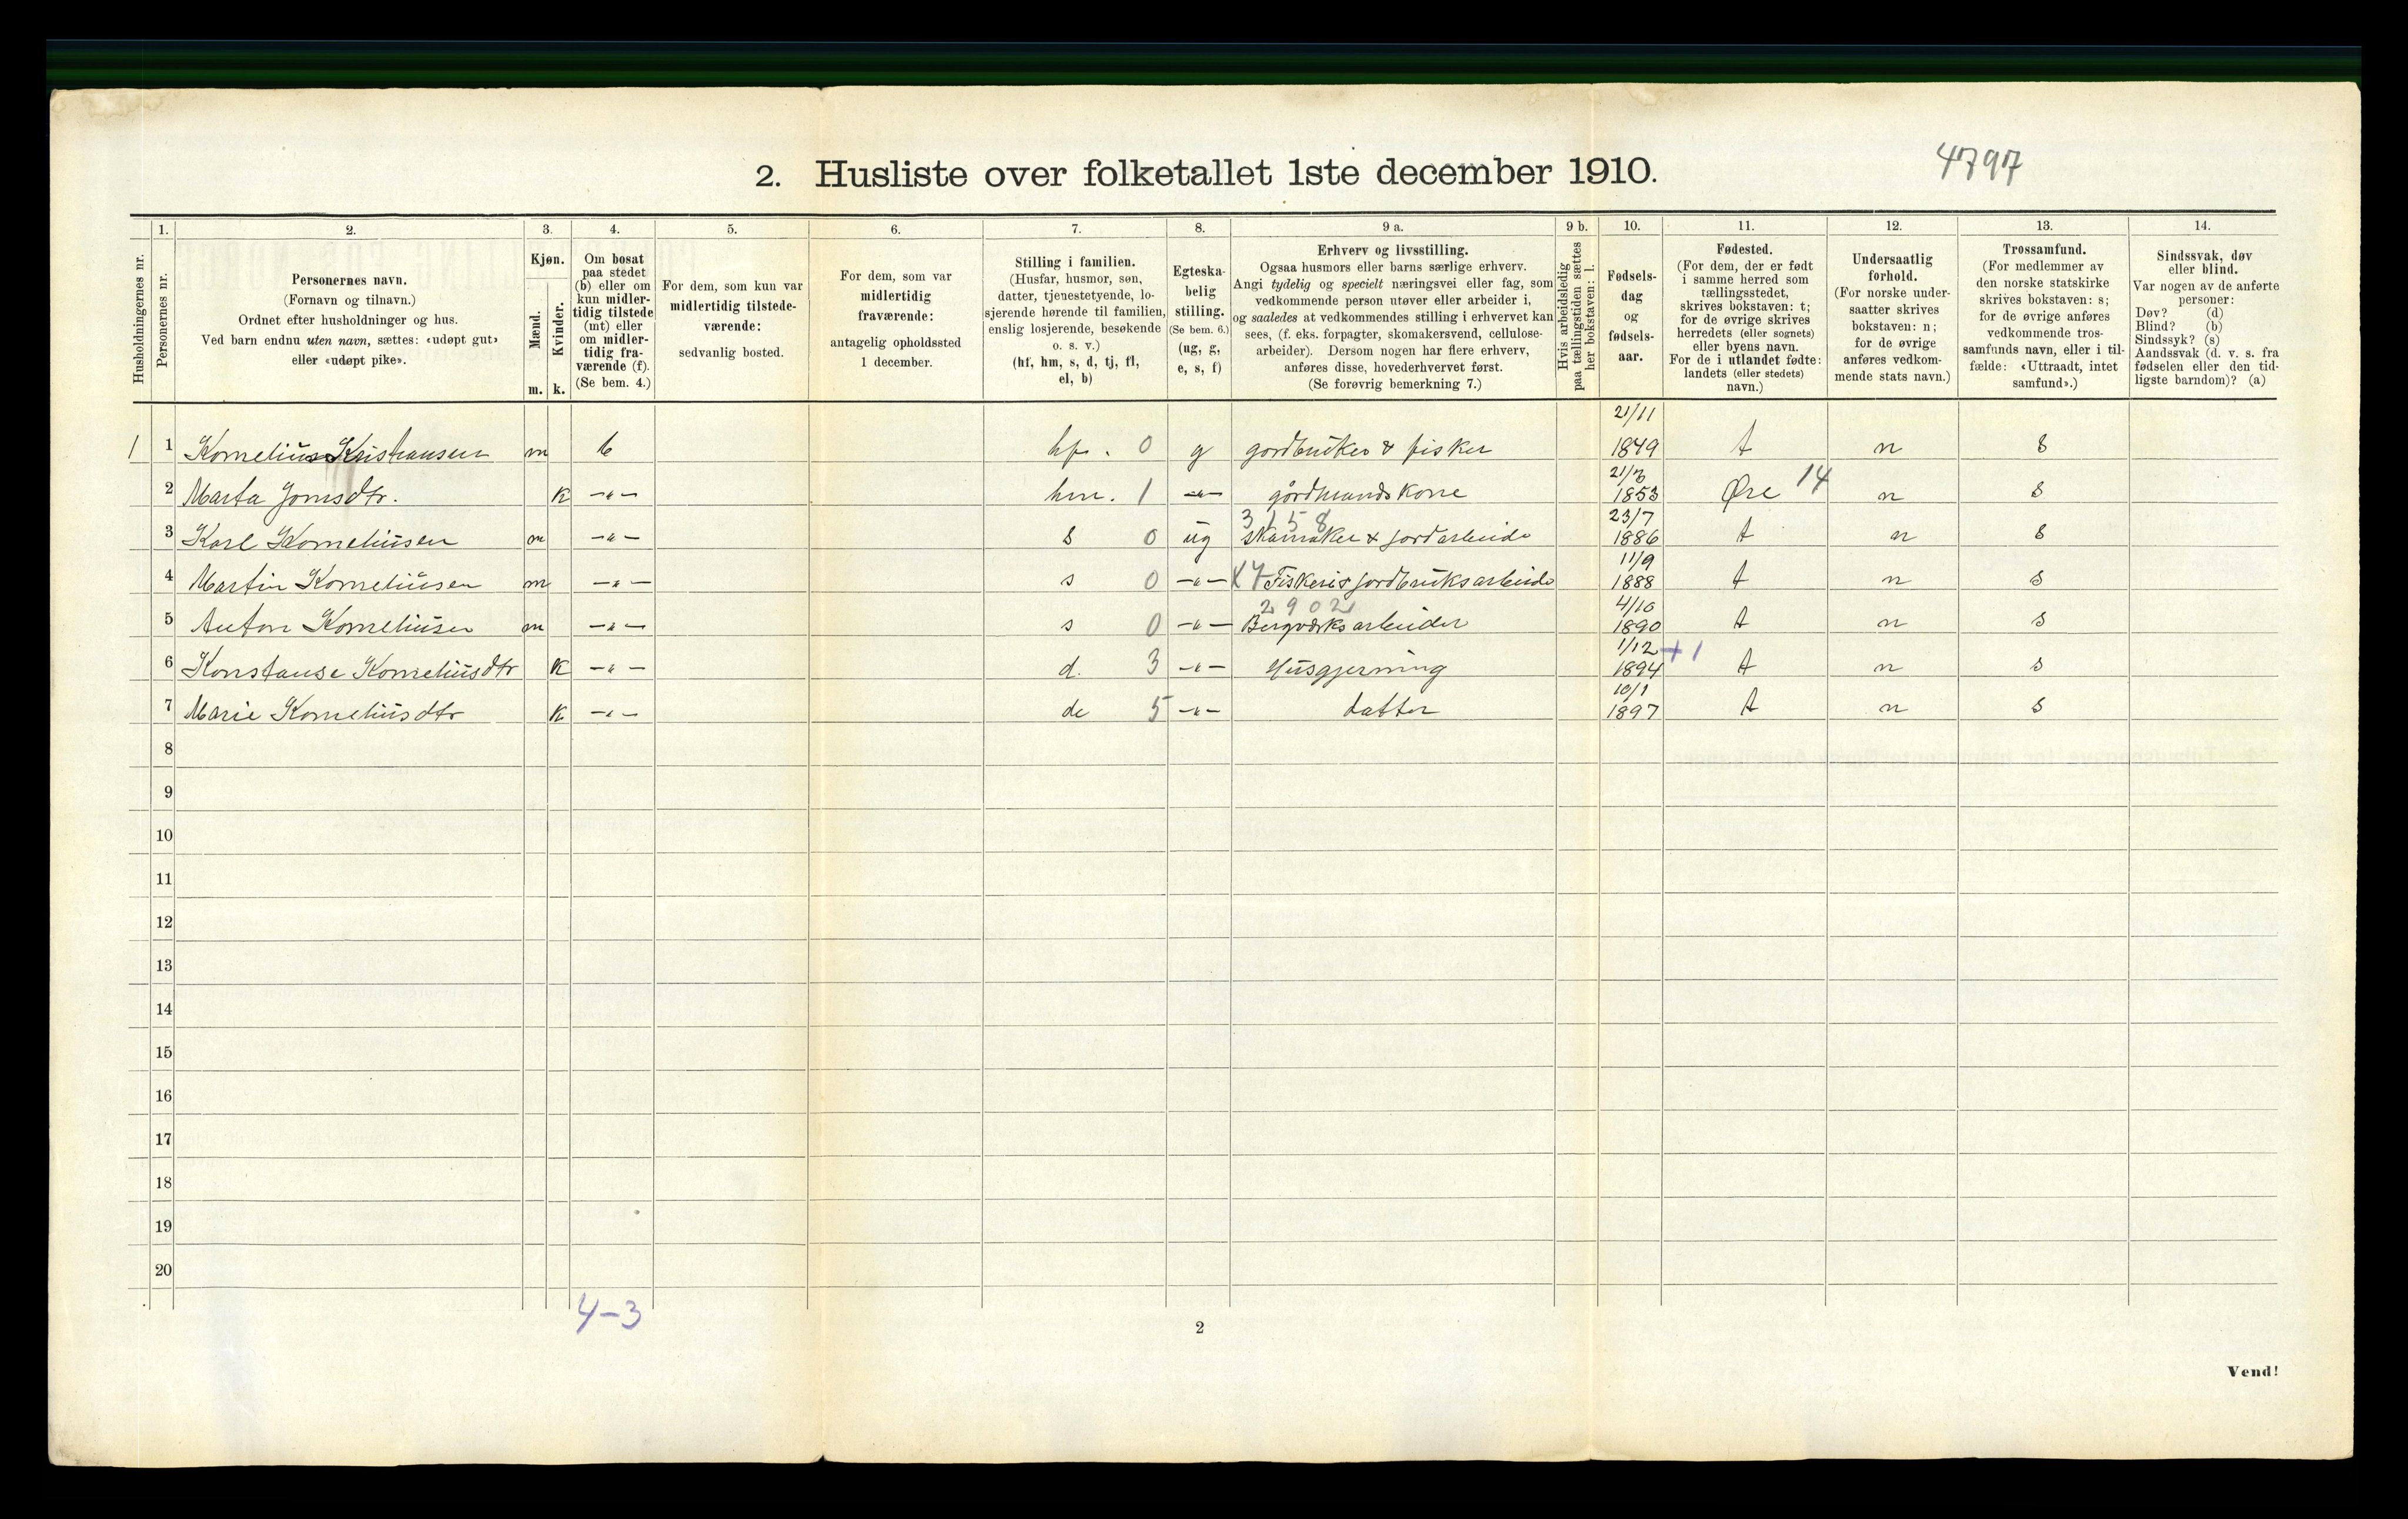 4797
2. Husliste over folketallet 1ste december 1910.
1. 2. 3. 4. 5. 6. 7. 8. 9 a. 9 b. 10. 11. 12. 13. 14.
Husholdningernes nr.
Personernes nr.
Personernes navn.
(Fornavn og tilnavn.)
Ordnet efter husholdninger og hus.
Ved barn endnu uten navn, sættes: «udøpt gut»
eller «udøpt pike».
Kjøn.
Mænd.
Kvinder.
m. k.
Om bosat
paa stedet
(b) eller om
kun midler-
tidig tilstede
(mt) eller
om midler-
tidig fra-
værende (f).
(Se bem. 4.)
For dem, som kun var
midlertidig tilstede-
værende:
sedvanlig bosted.
For dem, som var
midlertidig
fraværende:
antagelig opholdssted
1 december.
Stilling i familien.
(Husfar, husmor, søn,
datter, tjenestetyende, lo-
sjerende hørende til familien,
enslig losjerende, besøkende
o. s. v.)
(hf, hm, s, d, tj, fl,
el, b)
Egteska-
belig
stilling.
(Se bem. 6.)
(ug, g,
e, s, f)
Erhverv og livsstilling.
Ogsaa husmors eller barns særlige erhverv.
Angi tydelig og specielt næringsvei eller fag, som
vedkommende person utøver eller arbeider i,
og saaledes at vedkommendes stilling i erhvervet kan
sees, (f. eks. forpagter, skomakersvend, cellulose-
arbeider). Dersom nogen har flere erhverv,
anføres disse, hovederhvervet først.
(Se forøvrig bemerkning 7.)
Hvis arbeidsledig
paa tællingstiden sættes
her bokstaven: l.
Fødsels-
dag
og
fødsels-
aar.
Fødested.
(For dem, der er født
i samme herred som
tællingsstedet,
skrives bokstaven: t;
for de øvrige skrives
herredets (eller sognets)
eller byens navn.
For de i utlandet fødte:
landets (eller stedets)
navn.)
Undersaatlig
forhold.
(For norske under-
saatter skrives
bokstaven: n;
for de øvrige
anføres vedkom-
mende stats navn.)
Trossamfund.
(For medlemmer av
den norske statskirke
skrives bokstaven: s;
for de øvrige anføres
vedkommende tros-
samfunds navn, eller i til-
fælde: «Uttraadt, intet
samfund».)
Sindssvak, døv
eller blind.
Var nogen av de anførte
personer:
Døv? (d)
Blind? (b)
Sindssyk? (s)
Aandssvak (d. v. s. fra
fødselen eller den tid-
ligste barndom)? (a)
21/11
1 1 Kornelius Kristiansen m b hf. 0 g gordbruker & fisker 1849 t n s
2 Marta Jonsdtr. k -"- hm. 1 -"- gårdmands kone 1853 Øre 14 n s
3158 23/7
3 Karl Korneliusen m -"- s 0 ug skomaker & jordarbeide 1886 t n s
11/9
4 Martin Korneliusen m -"- s 0 -"- X7 Fiskeri & jordbruksarbeide 1888 t n s
2902 4/10
5 Anton Korneliusen m -"- s 0 -"- Bergverksarbeider 1890 t n s
1/12 +1
6 Konstanse Korneliusdtr k -"- d. 3 -"- Husgjerning 1894 t n s
10/1
7 Marie Korneliusdtr k -"- de 5 -"- datter 1897 t n s
8
9
10
11
12
13
14
15
16
17
18
19
20
4-3
2
Vend!